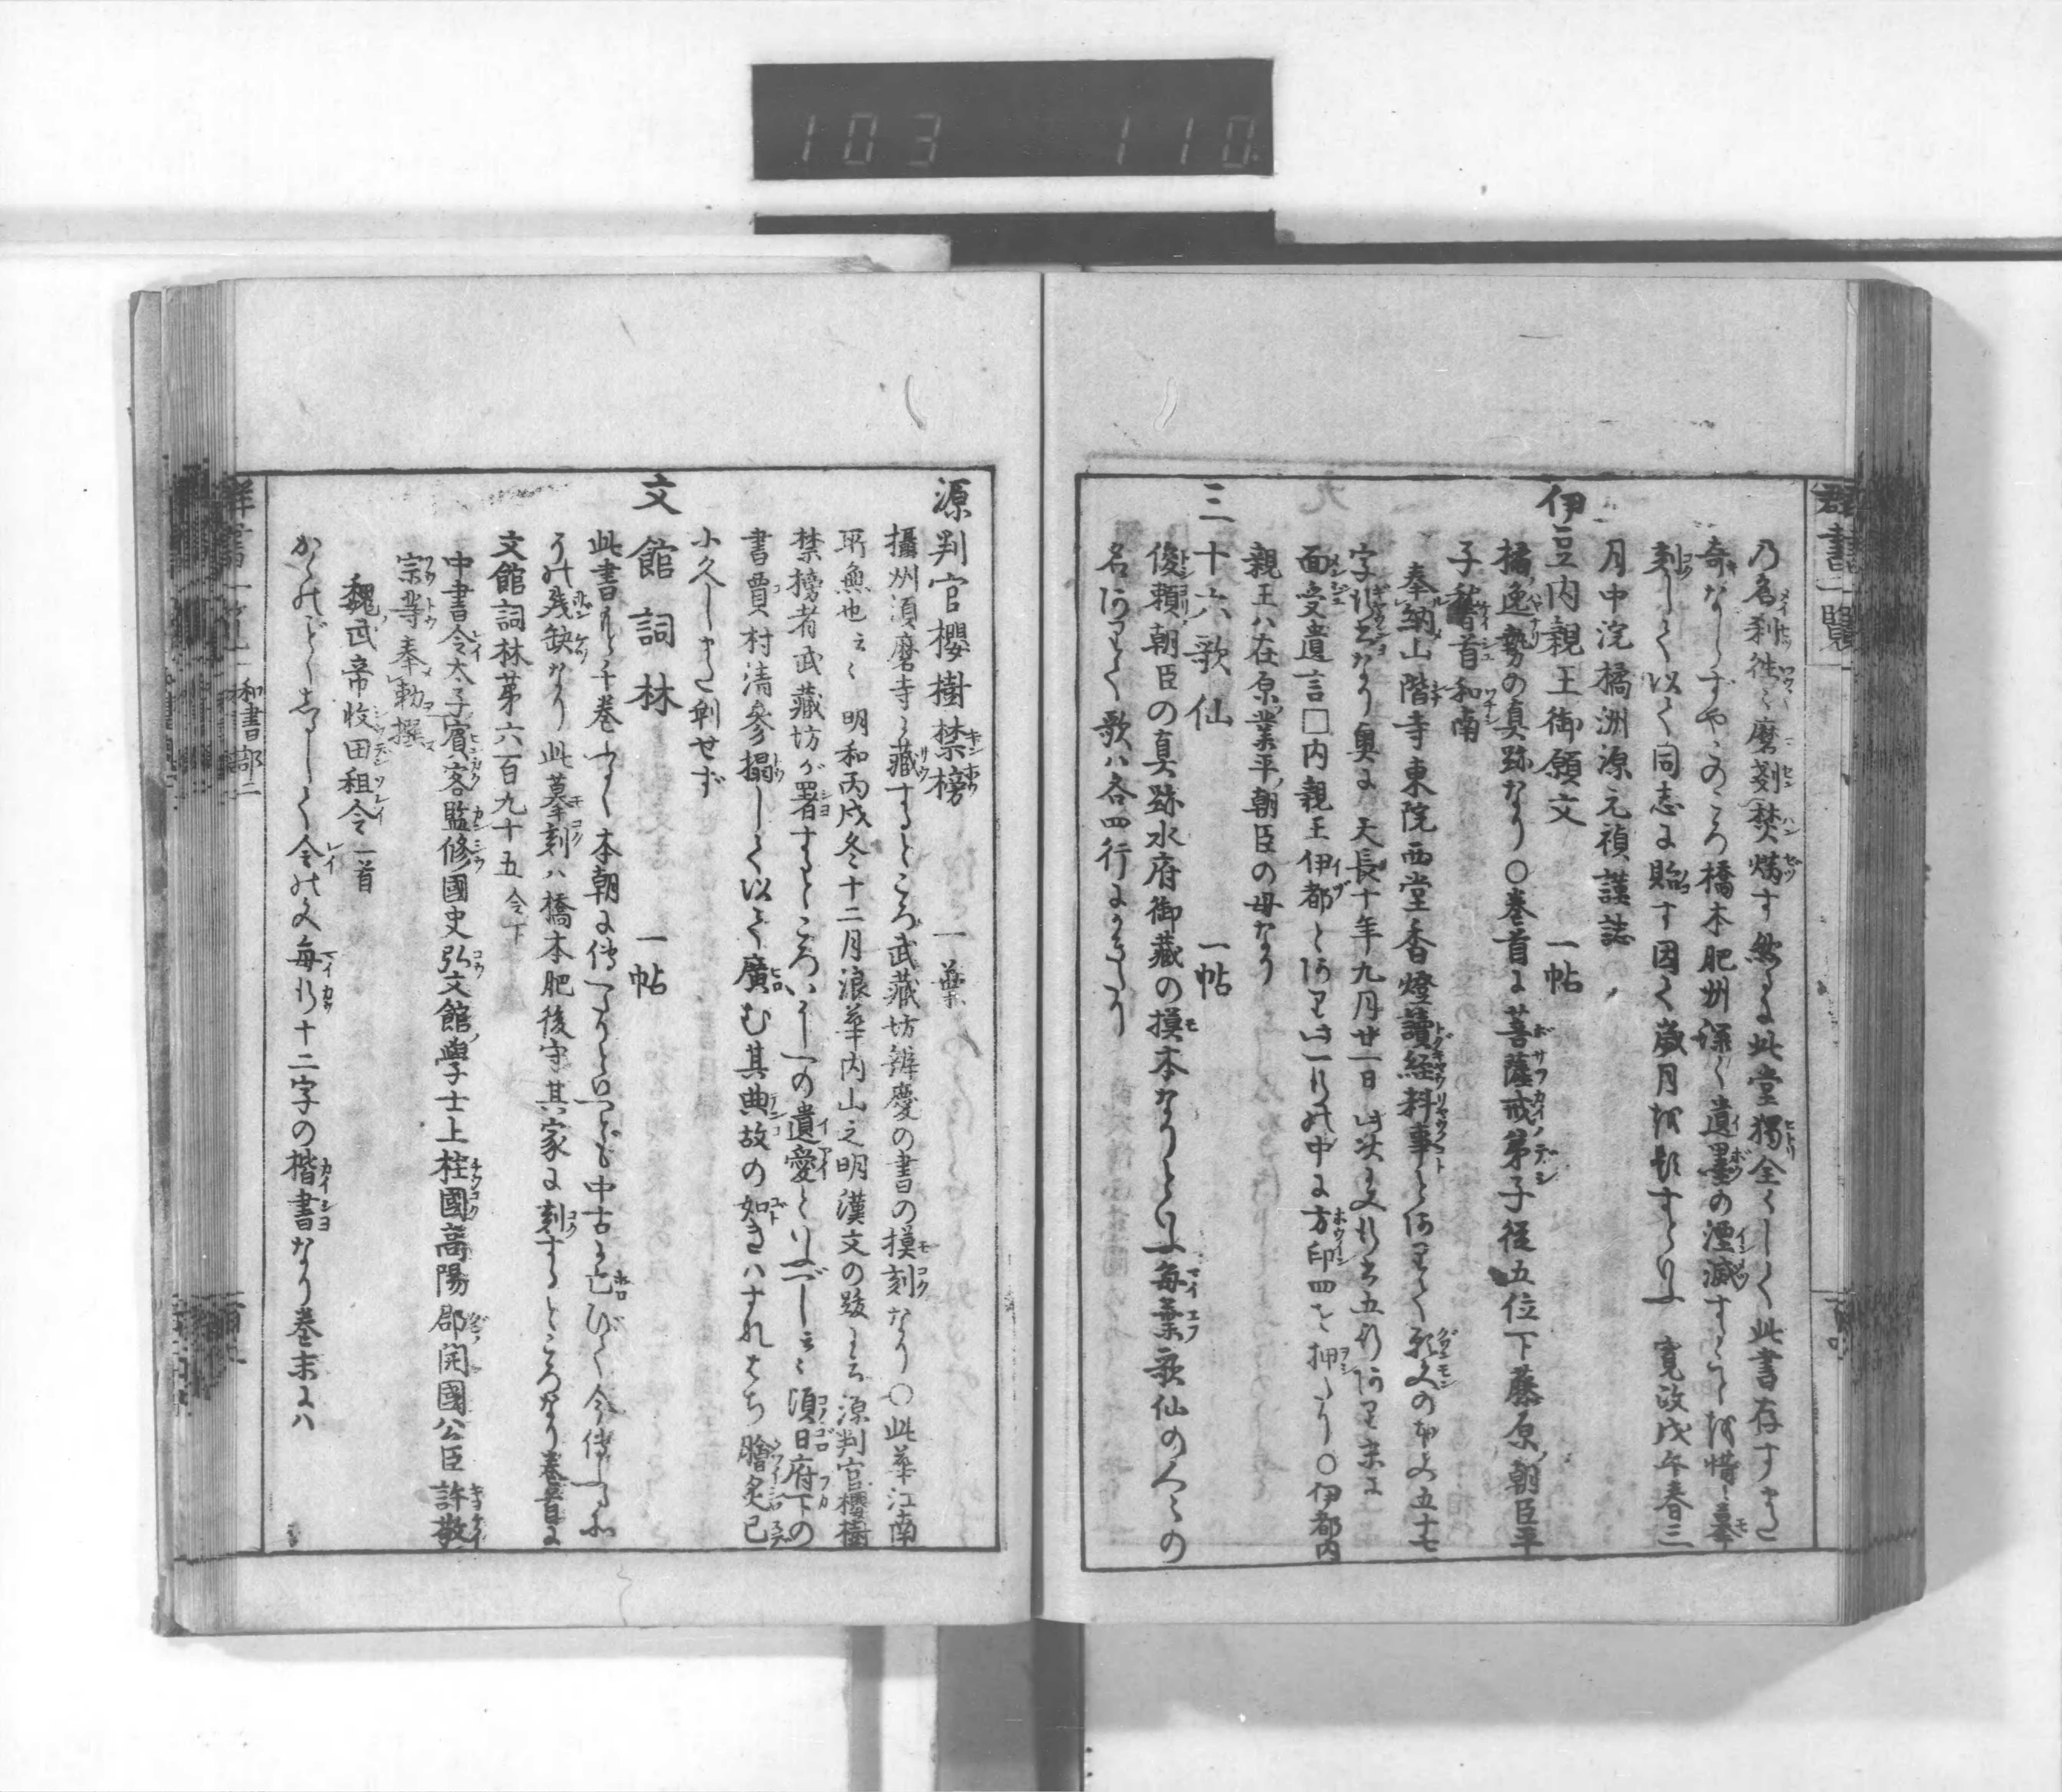 103 110
群書一覧
乃名刹往々磨剗焚燬す然るに此堂獨全くして此書存すまた
奇ならずやこのころ橋本肥州深く遺墨の湮滅することを惜み摹
刻して以て同志に貽す因て歳月を記すといふ 寛政戊午春三
月中浣橘洲源元禎謹誌
伊豆内親王御願文 一帖
橘逸勢の真跡なり〇巻首に菩薩戒弟子従五位下藤原朝臣平
子稽首和南
奉納山階寺東院西堂香燈讀経料事とありて願文の
字行書なり奥に 天長十年九月廿一日 此次に
面受遺言□内親王伊都とあり此一行の中に方印四を押たり〇伊都内
親王ハ在原業平朝臣の母なり
三十六歌仙 一帖
俊頼朝臣の真跡水府御蔵の摸本なりといふ毎葉歌仙の人々の
名ありて歌ハ各四行にかきたり
源判官櫻樹禁榜 一葉
攝州須磨寺に藏するところ武藏坊辨慶の書の摸刻なり〇此華江南
所無也云々 明和丙戌冬十二月浪華内山之明漢文の跋に云源判官櫻樹
禁榜者武藏坊が署するところハ一の遺愛といふべし云々須日府下の
書賈村清參搨して以て廣む其典故の如きハすれども膾炙已
に久しまた剰せず
文館詞林 一帖
此書もと千巻ありて本朝に傳ハるといへども中古に亡びて今傳ハる所
その残缺なり此摹刻ハ橋本肥後守其家に刻するところなり巻首に
文館詞林第六百九十五 令下
中書令太子賓客監修國史弘文館學士上柱國高陽郡開國公臣許敬
宗等奉勅撰
魏武帝收田租令一首
かくのごとくしるして令の文毎行十二字の楷書なり巻末にハ
和書部二